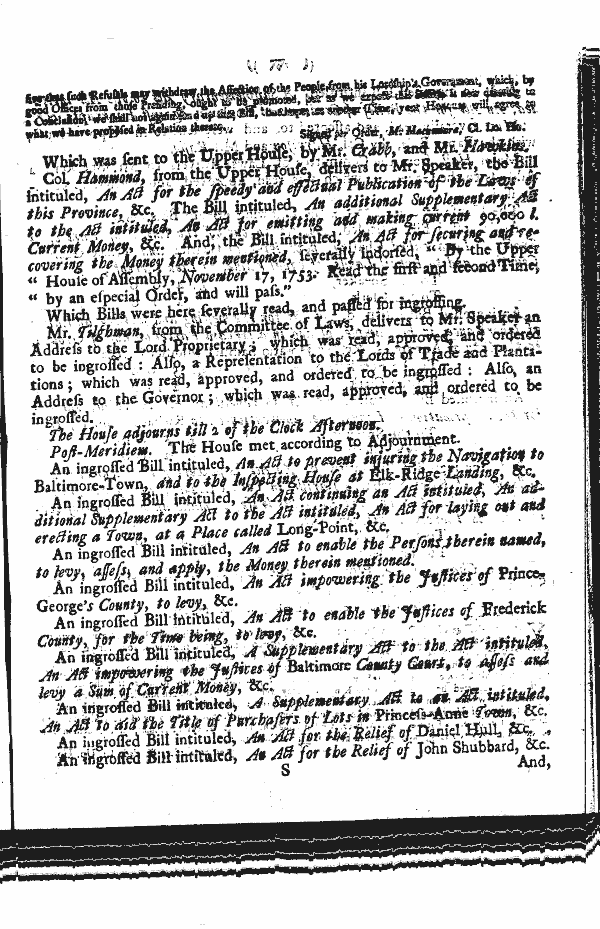 ( 77 )
such Refusals may withdraw the Affection of the People from his Lordship's Government, which, by
good Offices from those Presiding, ought to be promoted, but as we
a Conclusion, we shall not again send up this Bill, your Honours will agree to
what we have proposed in Relation thereto.
Signed p Order, M. Macnemara, Cl. Lo. Ho.
Which was ſent to the Upper Houſe, by Mr. Crabb, and Mr. Hawkins.
Col. Hammond, from the Upper Houſe, delivers to Mr. Speaker, the Bill
intituled, An Act for the ſpeedy and effectual Publication of the Laws of
this Province, &c. The Bill intituled, An additional Supplementary Act
to the Act intituled, An Act for emitting and making current 90,000 l.
Current Money, &c. And, the Bill intituled, An Act for ſecuring and re-
covering the Money therein mentioned, ſeverally indorſed, “ By the Upper
“ Houſe of Aſſembly, November 17, 1753. Read the firſt and ſecond Time,
“ by an eſpecial Order, and will paſs.”
Which Bills were here ſeverally read, and paſſed for ingroſſing.
Mr. Tilghman, from the Committee of Laws, delivers to Mr. Speaker an
Addreſs to the Lord Proprietary ; which was read, approved, and ordered
to be ingroſſed : Alſo, a Repreſentation to the Lords of Trade and Planta-
tions ; which was read, approved, and ordered to be ingroſſed : Alſo, an
Addreſs to the Governor ; which was read, approved, and ordered to be
ingroſſed.
The Houſe adjourns till 2 of the Clock Afternoon.
Poſt-Meridiem. The Houſe met according to Adjournment.
An ingroſſed Bill intituled, An Act to prevent injuring the Navigation to
Baltimore-Town, and to the Inſpecting Houſe at Elk-Ridge Landing, &c.
An ingroſſed Bill intituled, An Act continuing an Act intituled, An ad-
ditional Supplementary Act to the Act intituled, An Act for laying out and
erecting a Town, at a Place called Long-Point, &c.
An ingroſſed Bill intituled, An Act to enable the Perſons therein named,
to levy, aſſeſs, and apply, the Money therein mentioned.
An ingroſſed Bill intituled, An Act impowering the Juſtices of Prince-
George's County, to levy, &c.
An ingroſſed Bill intituled, An Act to enable the Juſtices of Frederick
County, for the Time being, to levy, &c.
An ingroſſed Bill intituled, A Supplementary Act to the Act intituled,
An Act impowering the Juſtices of Baltimore County Court, to aſſeſs and
levy a Sum of Current Money, &c.
An ingroſſed Bill intituled, A Supplementary Act to an Act intituled,
An Act to aid the Title of Purchaſers of Lots in Princeſs-Anne Town, &c.
An ingroſſed Bill intituled, An Act for the Relief of Daniel Hull, &c.
An ingroſſed Bill intituled, An Act for the Relief of John Shubbard, &c.
S
And,